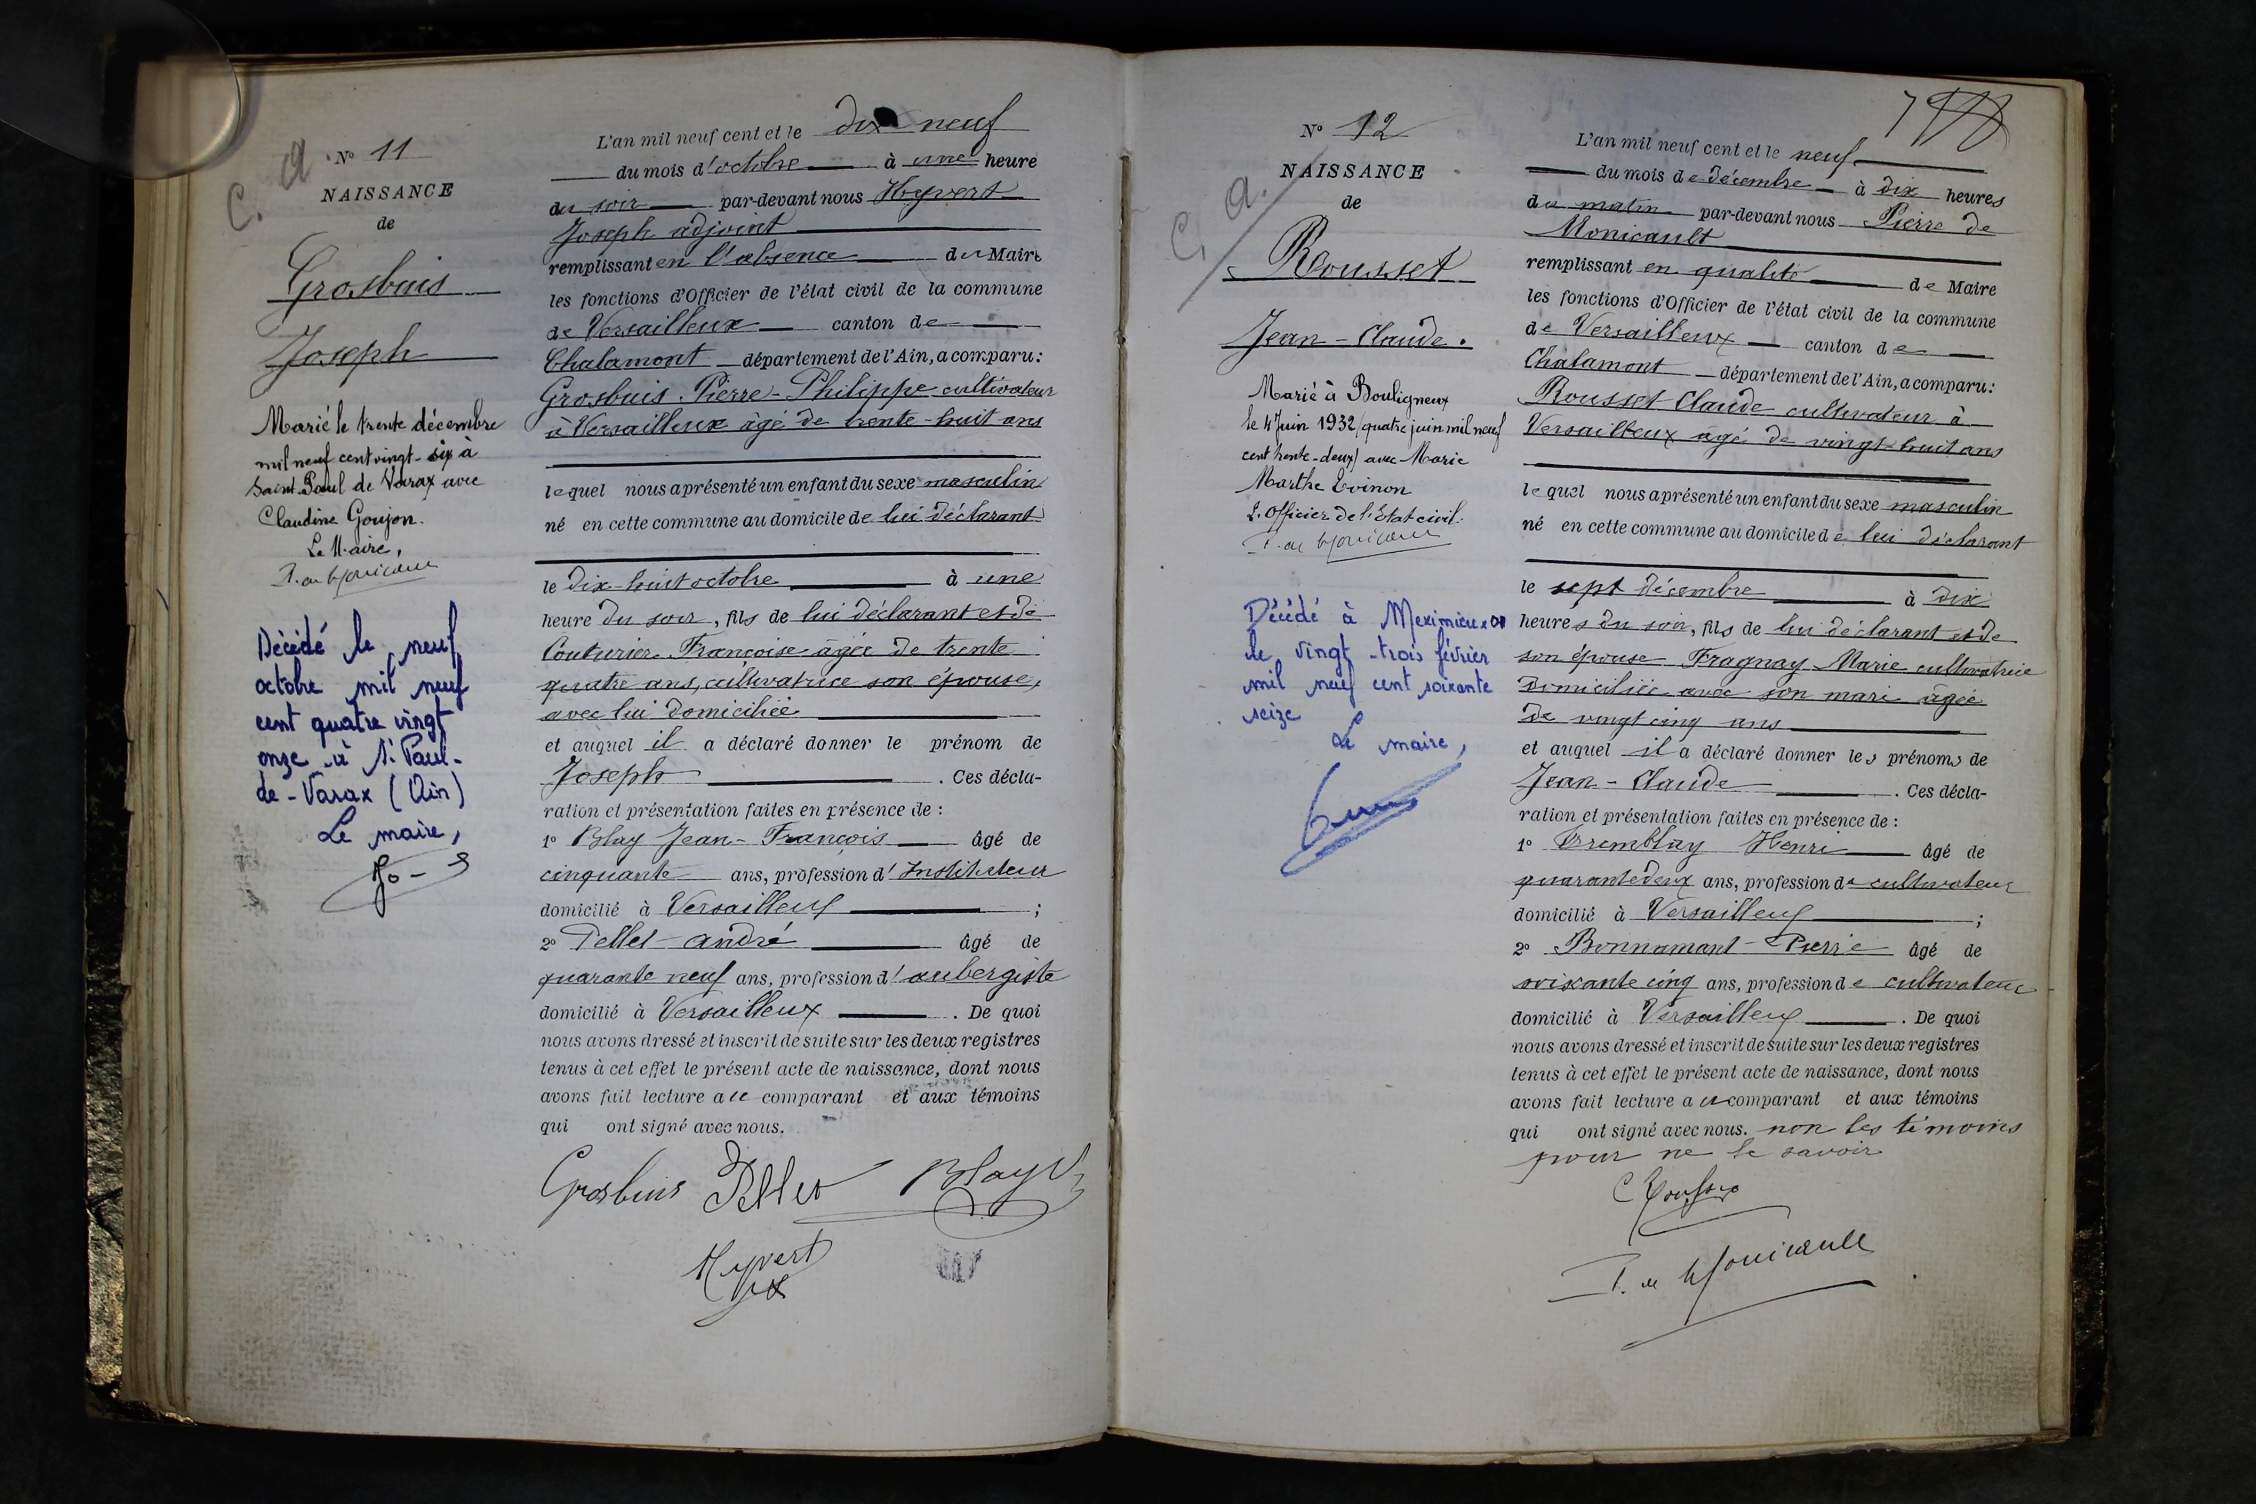 C. a
N° 11
NAISSANCE
de
Grosbuis
Joseph
Marié le trente décembre
mil neuf cent vingt-six à
Saint Paul de Varax avec
Claudine Goujon.
Le Maire,
Décédé le neuf
octobre mil neuf
cent quatre vingt
onze à St Paul-
de-Varax (Ain)
Le maire,
L'an mil neuf cent et le dix neuf
du mois d'octobre à une heure
du soir par-devant nous Heyvert
Joseph adjoint
remplissant en l'absence du Maire
les fonctions d'Officier de l'état civil de la commune
de Versailleux canton de
Chalamont département de l'Ain, a comparu:
Grosbuis Pierre-Philippe cultivateur
à Versailleux âgé de trente-huit ans
lequel nous a présenté un enfant du sexe masculin
né en cette commune au domicile de lui déclarant
le dix-huit octobre à une
heure du soir, fils de lui déclarant et de
Couturier Françoise âgée de trente
quatre ans, cultivatrice son épouse,
avec lui domiciliée
et auquel il a déclaré donner le prénom de
Joseph . Ces décla-
ration et présentation faites en présence de :
1° Blay Jean-François âgé de
cinquante ans, profession d'Instituteur
domicilié à Versailleux ;
2° Pellet André âgé de
quarante neuf ans, profession d'aubergiste
domicilié à Versailleux . De quoi
nous avons dressé et inscrit de suite sur les deux registres
tenus à cet effet le présent acte de naissance, dont nous
avons fait lecture au comparant et aux témoins
qui ont signé avec nous.
Grosbuis Pellet Blay
Heyvert
N° 12
NAISSANCE
de
C. a.
Rousset
Jean-Claude.
Marié à Bouligneux
le 4 Juin 1932 (quatre juin mil neuf
cent trente-deux) avec Marie
Marthe Loinon
L'Officier de l'Etat civil.
Décédé à Meximieux
le vingt-trois février
mil neuf cent soixante
seize
Le maire,
L'an mil neuf cent et le neuf
du mois de décembre à dix heures
du matin par-devant nous Pierre de
Monicault
remplissant en qualité de Maire
les fonctions d'Officier de l'état civil de la commune
de Versailleux canton de
Chalamont département de l'Ain, a comparu:
Rousset Claude cultivateur à
Versailleux âgé de vingt-huit ans
lequel nous a présenté un enfant du sexe masculin
né en cette commune au domicile de lui déclarant
le sept décembre à dix
heures du soir, fils de lui déclarant et de
son épouse Fragnay Marie cultivatrice
domiciliée avec son mari âgée
de vingt cinq ans
et auquel il a déclaré donner les prénoms de
Jean-Claude . Ces décla-
ration et présentation faites en présence de :
1° Tremblay Henri âgé de
quarante deux ans, profession de cultivateur
domicilié à Versailleux ;
2° Bonnamant Pierre âgé de
soixante cinq ans, profession de cultivateur
domicilié à Versailleux . De quoi
nous avons dressé et inscrit de suite sur les deux registres
tenus à cet effet le présent acte de naissance, dont nous
avons fait lecture au comparant et aux témoins
qui ont signé avec nous. non les témoins
pour ne le savoir
C Rousset
P. de Monicault